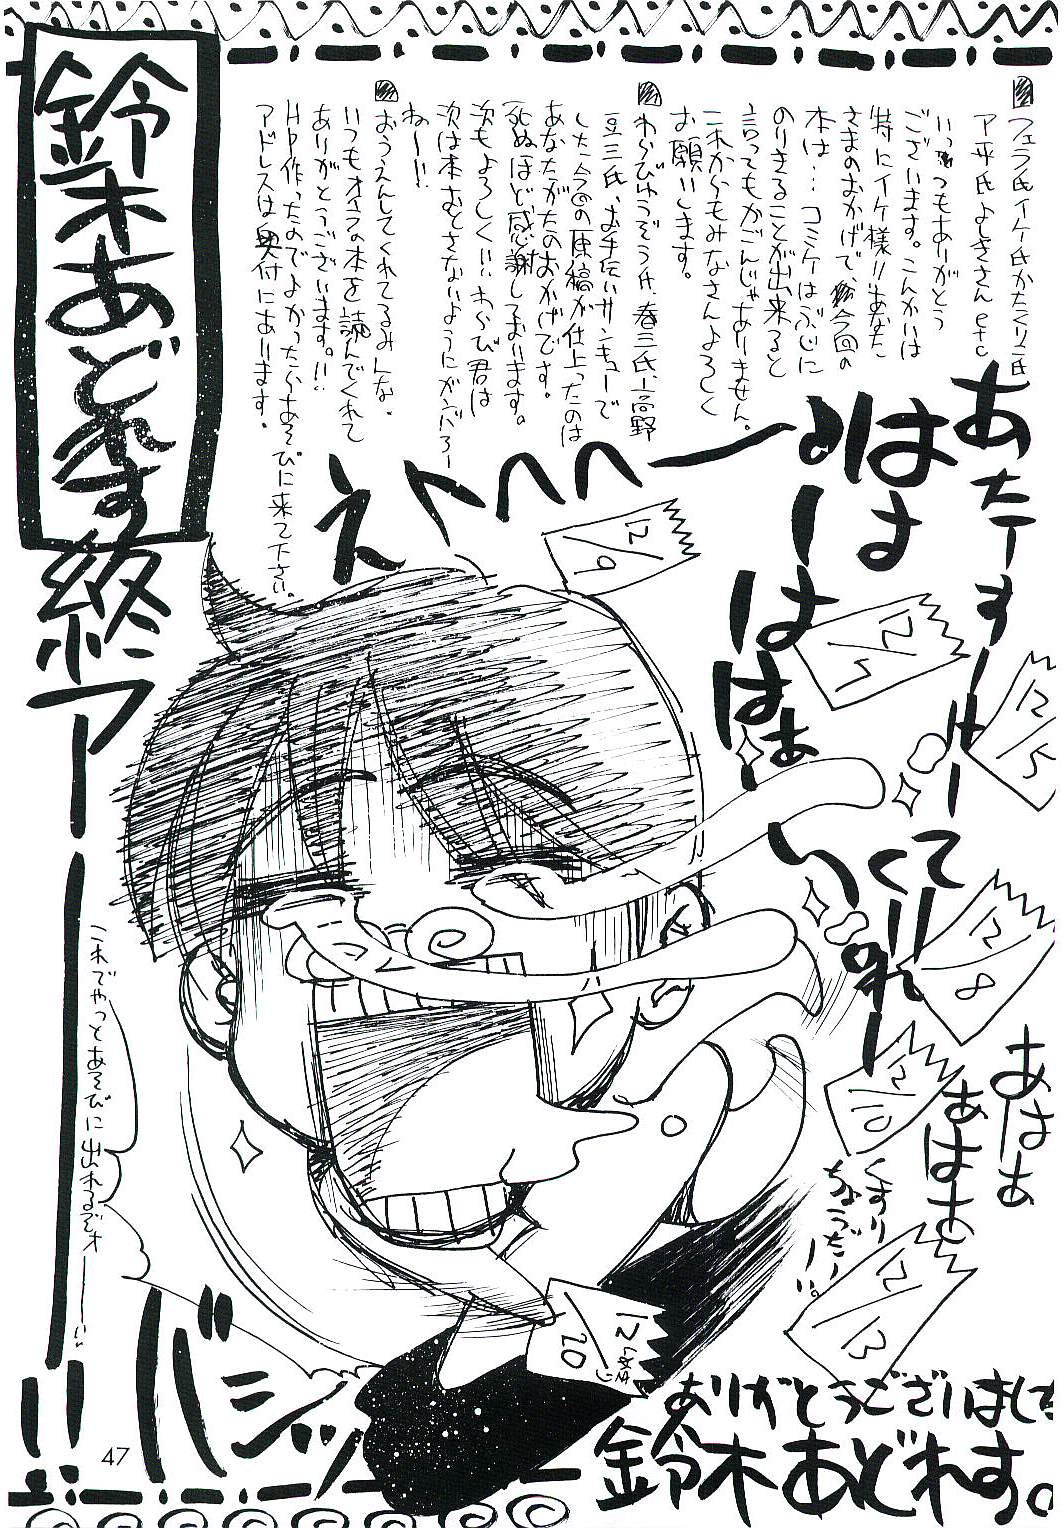 フェラ氏イケ氏かたくりこ氏
ア平氏よしきさんetc
いっつもありがとう
ございます。こんかいは
特にイケ様!!あなた
さまのおかげで今回の
本は…コミケはぶじに
のりきることが出来ると
言ってもかごんじゃありません。
これからもみなさんよろしく
お願いします。
わらびゅうぞう氏 春三氏 高野
豆三氏、お手伝いサンキューで
した今回の原稿が仕上ったのは
あなたがたのおかげです。
死ぬほど感謝しております。
次もよろしく!!わらび君は
次は本おとさないようにガンバろー
ねー!!
おうえんしてくれてるみんな、
いつもオイラの本を読んでくれて
ありがとうございます。!!
HP作ったのでよかったらあそびに来て下さい。
アドレスは奥付にあります。
鈴木あどれす
終アーーー!!
あたーすーけーてーくれー
ははははぁ
いくのー
えへへへー
12/9
12/5
12/5
12/8
12/10
12/13
12しめきり/20
あはぁ
あはぁ
くすり
ちょうだーい。
これでやっとあそびに出れるぞォーー!!
バシッ
ありがとうございました
鈴木あどれす。
47